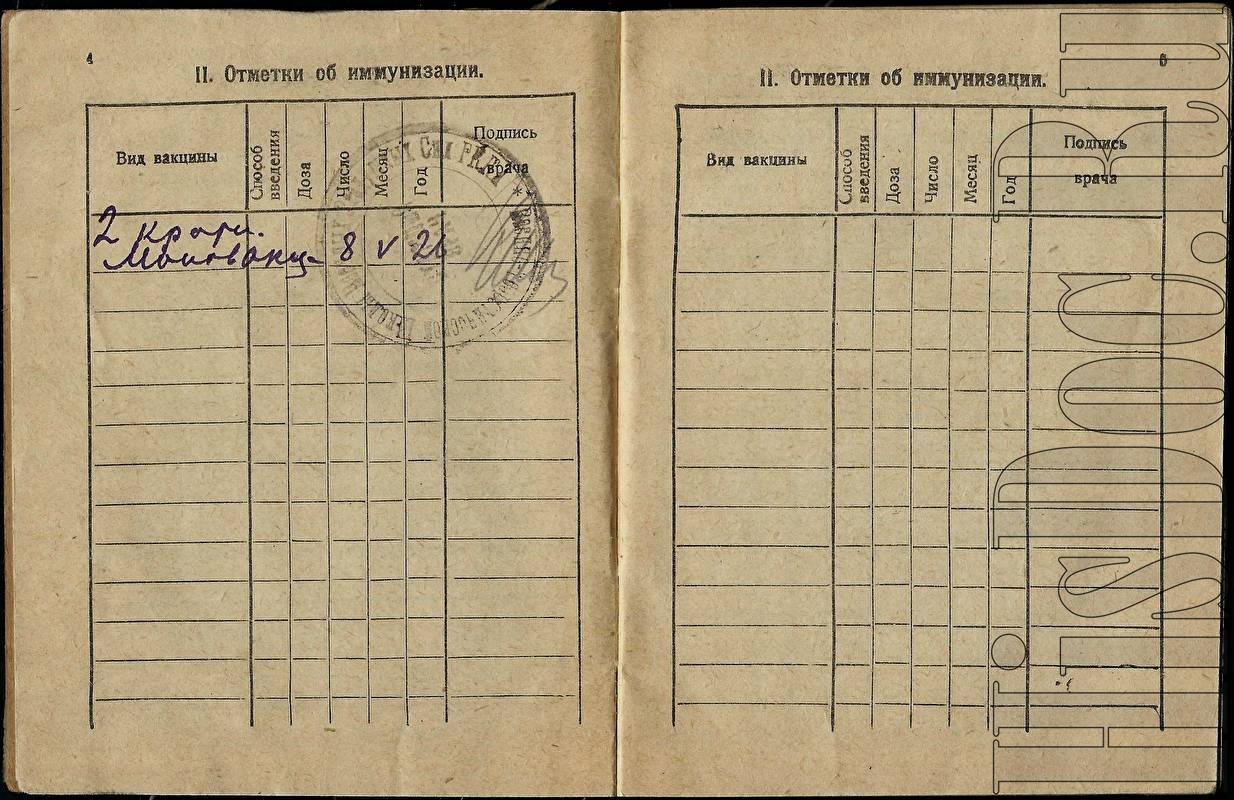 4
II. Отметки об иммунизации.
Вид вакцины
Способ введения
Доза
Число
Месяц
Год
Подпись
врача
2
8 V 26
5
II. Отметки об иммунизации.
Вид вакцины
Способ введения
Доза
Число
Месяц
Год
Подпись
врача
HisDoc.Ru